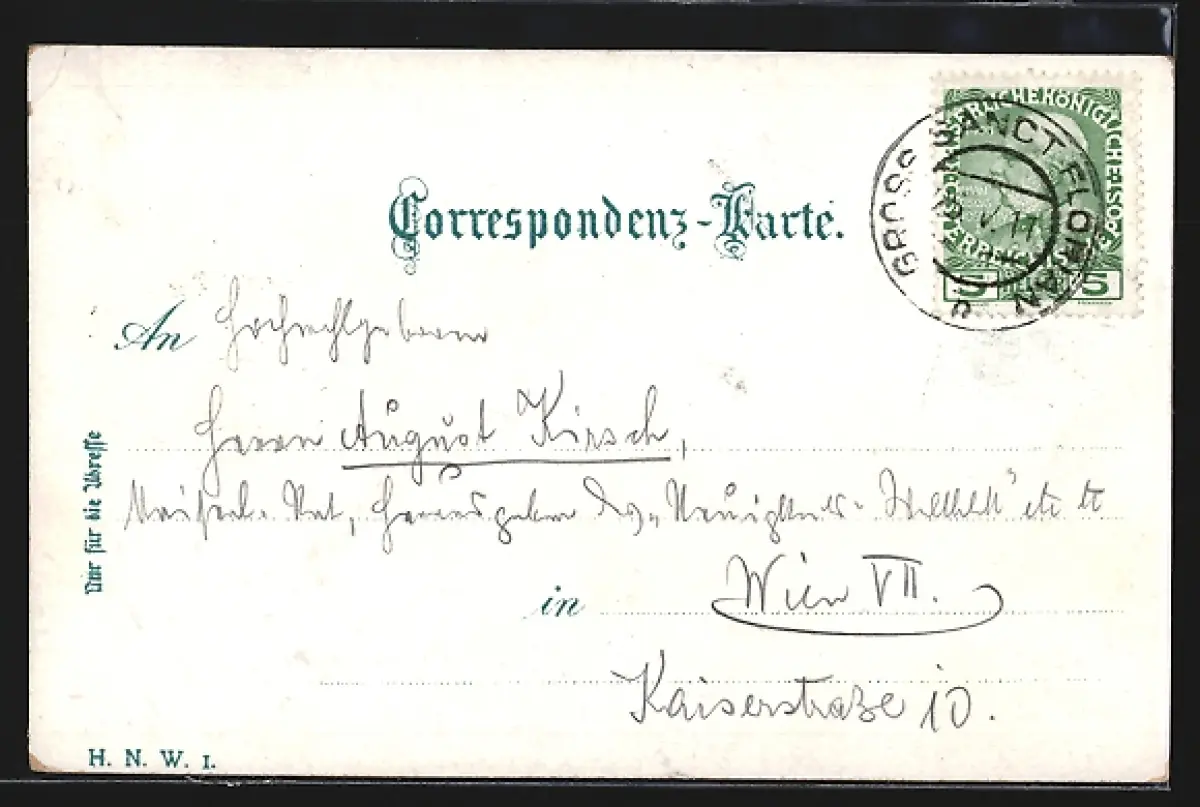 Correspondenz-Karte.
KAISERLICHE KÖNIGLICHE ÖSTERREICHISCHE
5 HELLER 5
GROSS SANCT FLORIAN
V. 11
An Hochwohlgeboren
Herrn August Kirsch,
Rat, Herausgeber des „Neuigkeits-Weltblatt" etc etc
in Wien VII.
Kaiserstraße 10.
Nur für die Adresse
H. N. W. I.